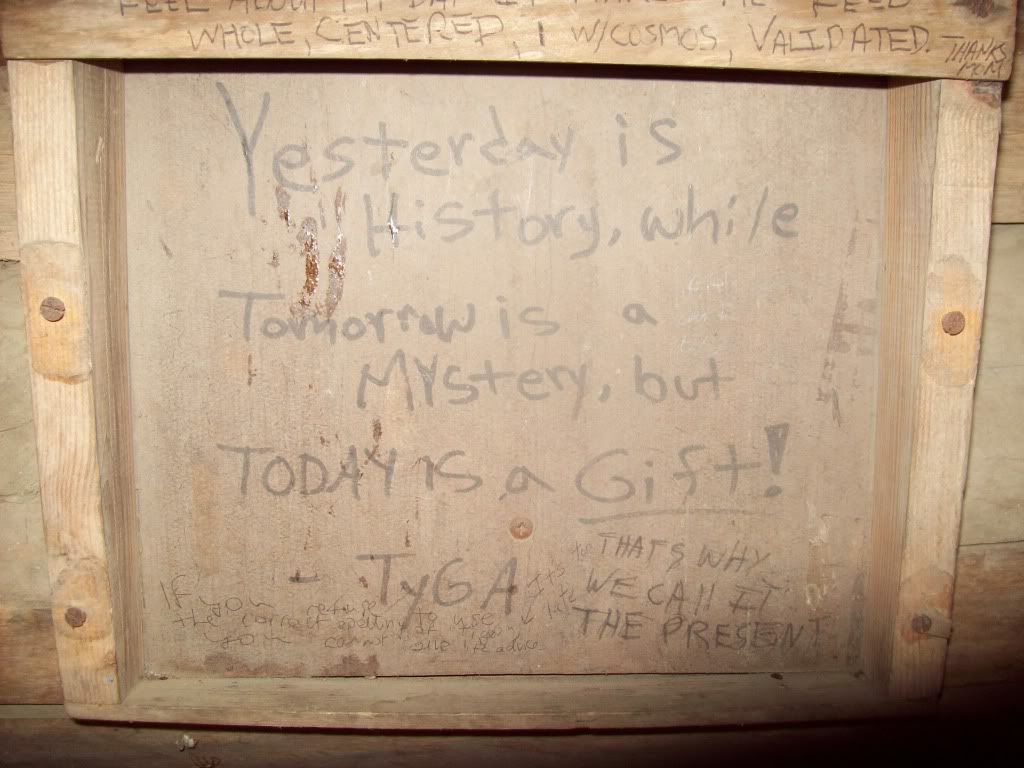 FEEL ABOUT MY DAY IT MAKES ME FEEL
WHOLE, CENTERED, 1 W/COSMOS, VALIDATED.
THANKS
MOM
Yesterday is
History, while
Tomorrow is a
MYstery, but
TODAY is a Gift!
- TyGA
THATS WHY
WE CAll IT
THE PRESENT
If you refuse to use
the correct spelling of
you cannot give life advice